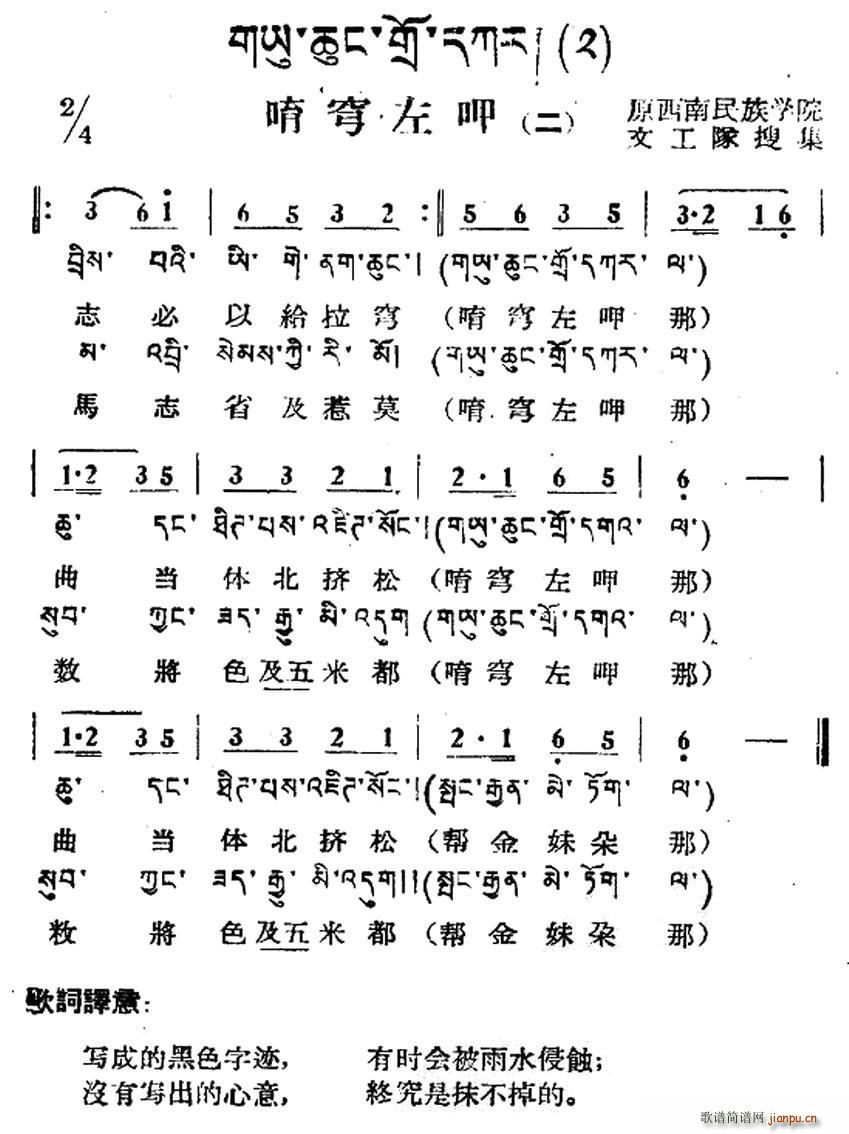 གཡུ་ཆུང་གྲོ་དཀར། (༢)
2/4
唷穹左呷（二）
原西南民族学院
文工隊搜集
‖: 3 6 i | 6 5 3 2 :‖ 5 6 3 5 | 3·2 1 6 |
བྲིས་ པའི་ ཡི་ གེ་ ནག་ཆུང་། (གཡུ་ཆུང་གྲོ་དཀར་ ལ་)
志 必 以 給 拉 穹 （唷 穹 左 呷 那）
མ་ འབྲི་ སེམས་ཀྱི་ རི་ མོ། (གཡུ་ཆུང་གྲོ་དཀར་ ལ་)
馬 志 省 及 惹 莫 （唷 穹 左 呷 那）
| 1·2 3 5 | 3 3 2 1 | 2·1 6 5 | 6 — |
ཆུ་ དང་ ཐིཊ་པས་འཇིཊ་སོང་། (གཡུ་ཆུང་གྲོ་དགའ་ ལ་)
曲 当 体 北 挤 松 （唷 穹 左 呷 那）
སུབ་ ཀྱང་ ཟད་ རྒྱུ་ མི་འདུག (གཡུ་ཆུང་གྲོ་དགའ་ ལ་)
数 將 色 及 五 米 都 （唷 穹 左 呷 那）
| 1·2 3 5 | 3 3 2 1 | 2·1 6 5 | 6 — ‖
ཆུ་ དང་ ཐིཊ་པས་འཇིཊ་སོང་། (སྤང་རྒྱན་ མེ་ ཏོག་ ལ་)
曲 当 体 北 挤 松 （帮 金 妹 朶 那）
སུབ་ ཀྱང་ ཟད་ རྒྱུ་ མི་འདུག།། (སྤང་རྒྱན་ མེ་ ཏོག་ ལ་)
敉 將 色 及 五 米 都 （帮 金 妹 朶 那）
歌詞譯意：
写成的黑色字迹， 有时会被雨水侵蝕；
沒有写出的心意， 終究是抹不掉的。
歌谱简谱网 jianpu.cn